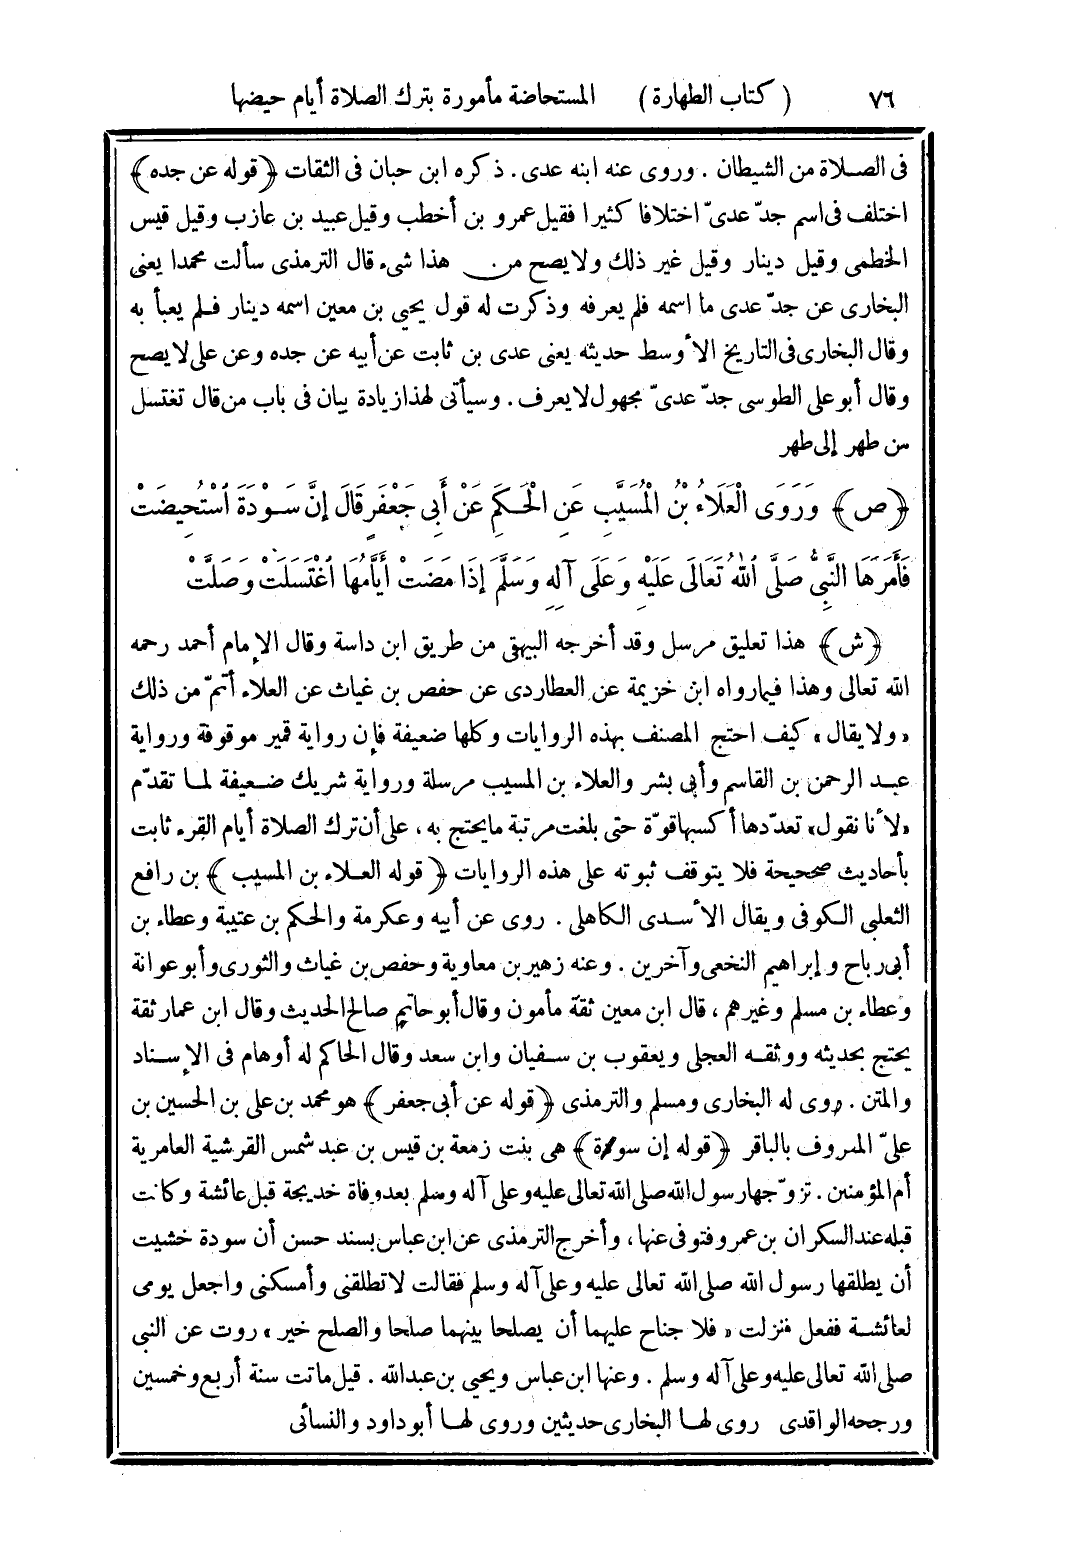 ٧٦ ( كتاب الطهارة ) المستحاضة مأمورة بترك الصلاة أيام حيضها
فى الصلاة من الشيطان . وروى عنه ابنه عدى . ذكره ابن حبان فى الثقات ﴿قوله عن جده﴾
اختلف فى اسم جدّ عدىّ اختلافا كثيرا فقيل عمرو بن أخطب وقيل عبيد بن عازب وقيل قيس
الخطمى وقيل دينار وقيل غير ذلك ولا يصح من هذا شىء قال الترمذى سألت محمدا يعنى
البخارى عن جدّ عدى ما اسمه فلم يعرفه وذكرت له قول يحيي بن معين اسمه دينار فلم يعبأ به
وقال البخارى فى التاريخ الأوسط حديثه يعنى عدى بن ثابت عن أبيه عن جده وعن على لا يصح
وقال أبو على الطوسى جدّ عدىّ مجهول لا يعرف . وسيأتى لهذا زيادة بيان فى باب من قال تغتسل
من طهر إلى طهر
﴿ص﴾ وَرَوَى الْعَلَاءُ بْنُ الْمُسَيَّبِ عَنِ الْحَكَمِ عَنْ أَبِى جَعْفَرٍ قَالَ إِنَّ سَوْدَةَ اُسْتُحِيضَتْ
فَأَمَرَهَا النَّبِىُّ صَلَّى اللهُ تَعَالَى عَلَيْهِ وَعَلَى آلِهِ وَسَلَّمَ إِذَا مَضَتْ أَيَّامُهَا اغْتَسَلَتْ وَصَلَّتْ
﴿ش﴾ هذا تعليق مرسل وقد أخرجه البيهقى من طريق ابن داسة وقال الإمام أحمد رحمه
الله تعالى وهذا فيما رواه ابن خزيمة عن العطاردى عن حفص بن غياث عن العلاء أتمّ من ذلك
«ولا يقال» كيف احتج المصنف بهذه الروايات وكلها ضعيفة فإن رواية قمير موقوفة ورواية
عبد الرحمن بن القاسم وأبى بشر والعلاء بن المسيب مرسلة ورواية شريك ضعيفة لما تقدّم
«لأنا نقول» تعدّدها أكسبها قوّة حتى بلغت مرتبة ما يحتج به ، على أن ترك الصلاة أيام القرء ثابت
بأحاديث صحيحة فلا يتوقف ثبوته على هذه الروايات ﴿قوله العلاء بن المسيب﴾ بن رافع
الثعلبى الكوفى ويقال الأسدى الكاهلى . روى عن أبيه وعكرمة والحكم بن عتيبة وعطاء بن
أبى رباح وإبراهيم النخعى وآخرين . وعنه زهير بن معاوية وحفص بن غياث والثورى وأبو عوانة
وعطاء بن مسلم وغيرهم ، قال ابن معين ثقة مأمون وقال أبو حاتم صالح الحديث وقال ابن عمار ثقة
يحتج بحديثه ووثقه العجلى ويعقوب بن سفيان وابن سعد وقال الحاكم له أوهام فى الإسناد
والمتن . روى له البخارى ومسلم والترمذى ﴿قوله عن أبى جعفر﴾ هو محمد بن على بن الحسين بن
علىّ المعروف بالباقر ﴿قوله إن سودة﴾ هى بنت زمعة بن قيس بن عبد شمس القرشية العامرية
أم المؤمنين . تزوّجها رسول الله صلى الله تعالى عليه وعلى آله وسلم بعد وفاة خديجة قبل عائشة وكانت
قبله عند السكران بن عمرو فتوفى عنها ، وأخرج الترمذى عن ابن عباس بسند حسن أن سودة خشيت
أن يطلقها رسول الله صلى الله تعالى عليه وعلى آله وسلم فقالت لا تطلقنى وأمسكنى واجعل يومى
لعائشة ففعل فنزلت «فلا جناح عليهما أن يصلحا بينهما صلحا والصلح خير» روت عن النبى
صلى الله تعالى عليه وعلى آله وسلم . وعنها ابن عباس ويحيي بن عبد الله . قيل ماتت سنة أربع وخمسين
ورجحه الواقدى روى لها البخارى حديثين وروى لها أبو داود والنسائى